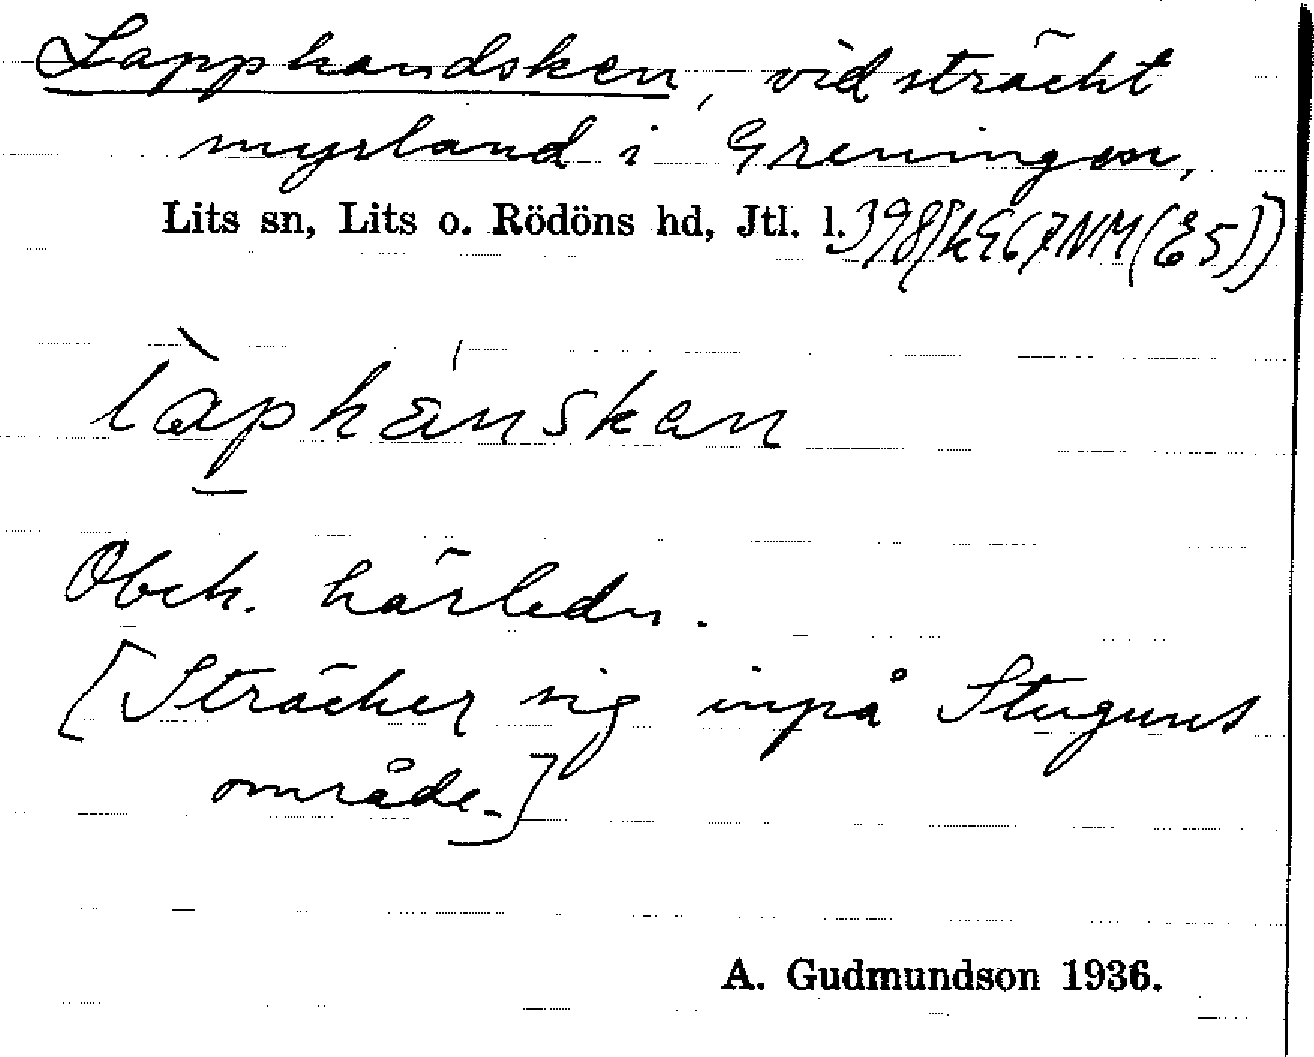 Lapphandsken, vidsträckt
myrland i Greningen,
Lits sn, Lits o. Rödöns hd, Jtl. l.
làphánsken
Obek. härledn.
[Sträcker sig inpå Stuguns
område.]
A. Gudmundson 1936.